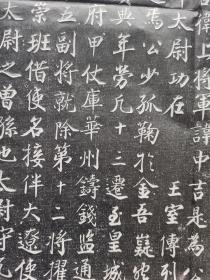 衛上將軍諱中吉是為公
太尉功在 王室傳列
焉公少孤鞠於金吾嶷
與年勞凡十三遷至皇城
府甲仗庫華州鑄錢監通
五副將就除第十二將擢
崇班借使名接伴大遼使
太尉之曾孫也太尉守